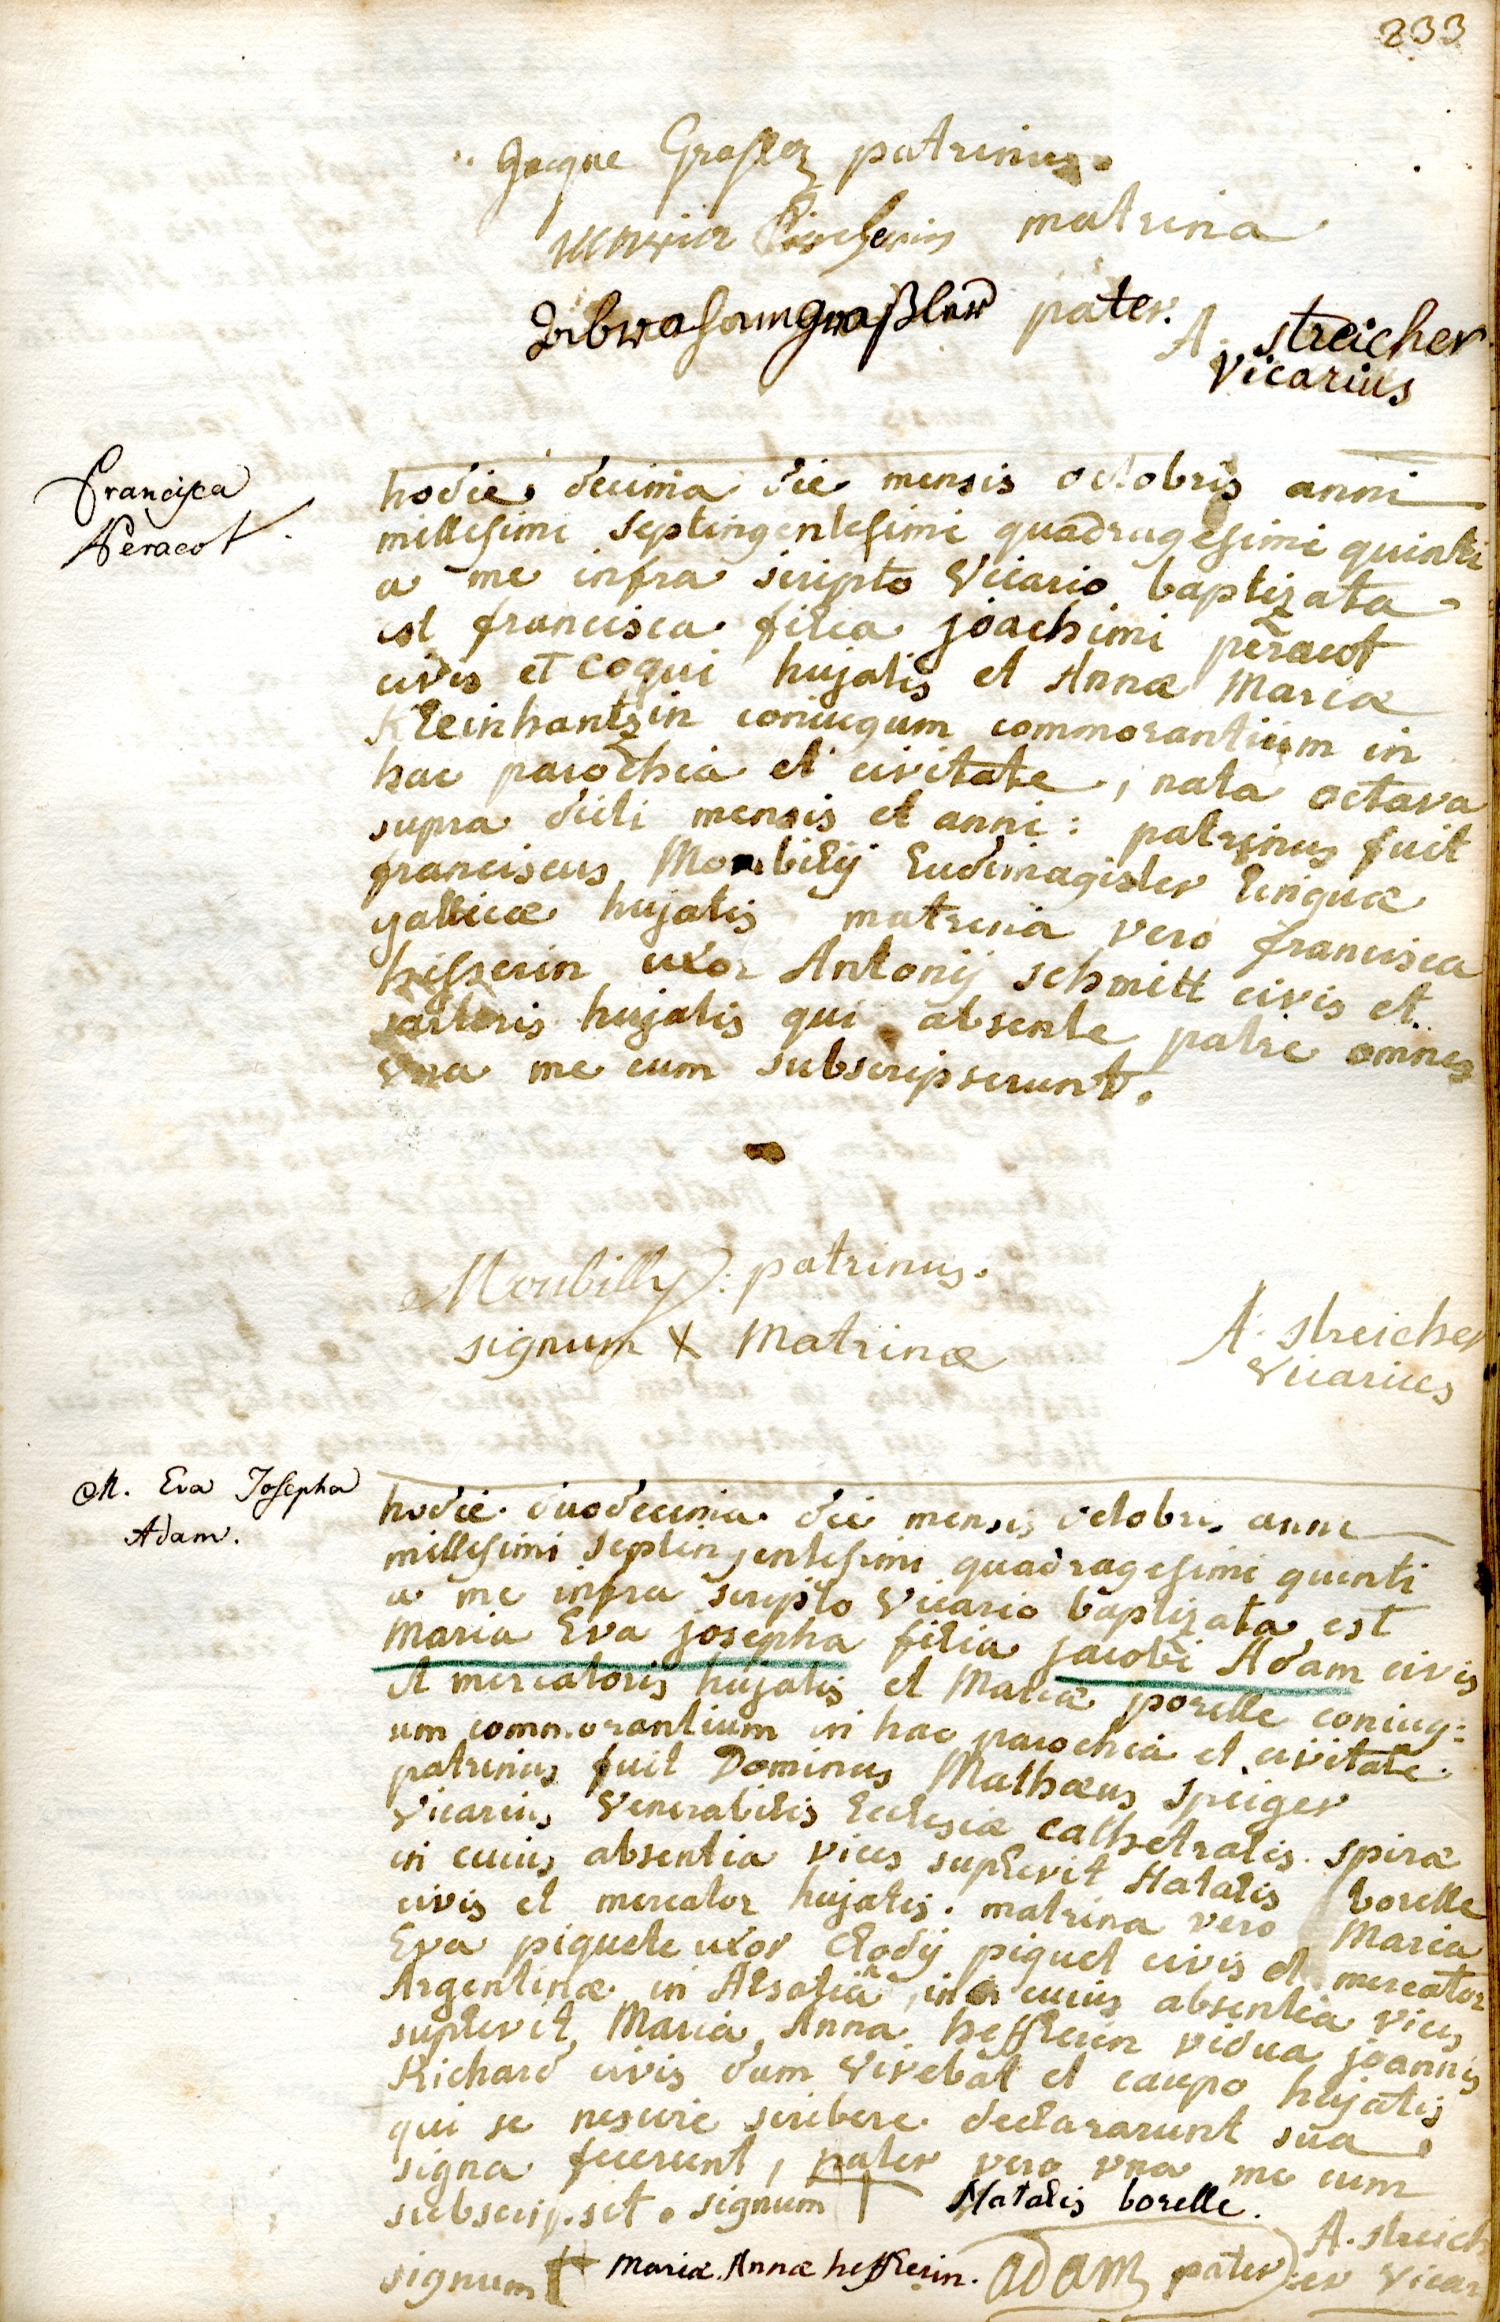 233
patrinus.
matrina
pater.
A. streicher
Vicarius
Francisca
Peracot
hodie decima die mensis octobris anni
millesimi septingentesimi quadragesimi quinti
a me infra scripto Vicario baptizata
est francisca filia joachimi peracot
civis et coqui hujatis et Annæ Mariæ
Kleinhantzin coniugum commorantium in
hac parochia et civitate, nata octava
supra dicti mensis et anni: patrinus fuit
franciscus Moubilij Ludimagister linguæ
gallicæ hujatis matrina vero francisca
uxor Antonij schmitt civis et
sartoris hujatis qui absente patre omnes
Una me cum subscripserunt.
Moubilly: patrinus.
signum X Matrinæ
A. streicher
Vicarius
M. Eva Josepha
Adam.
hodie duodecima die mensis octobris anni
millesimi septingentesimi quadragesimi quinti
a me infra scripto Vicario baptizata est
Maria Eva josepha filia jacobi Adam civis
et mercatoris hujatis et Mariæ porelle coniug=
um commorantium in hac parochia et civitate.
patrinus fuit Dominus Mathæus Speiger
Vicarius Venerabilis Ecclesiæ cathetralis spiræ
in cuius absentia vices suplevit Natalis borelle
civis et mercator hujatis. matrina vero Maria
Eva piquete uxor Clodij piquet civis et mercator
Argentinæ in Alsatia, in cuius absentia vices
suplevit Maria Anna hefflerin vidua joannis
Richard civis dum Vivebat et caupo hujatis
qui se nescire scribere declararunt sua
signa fecerunt, pater vero una me cum
subscripsit. signum † Natalis borelle.
A. streich
signum † Mariæ Annæ hefflerin. ADAM pater er Vicar